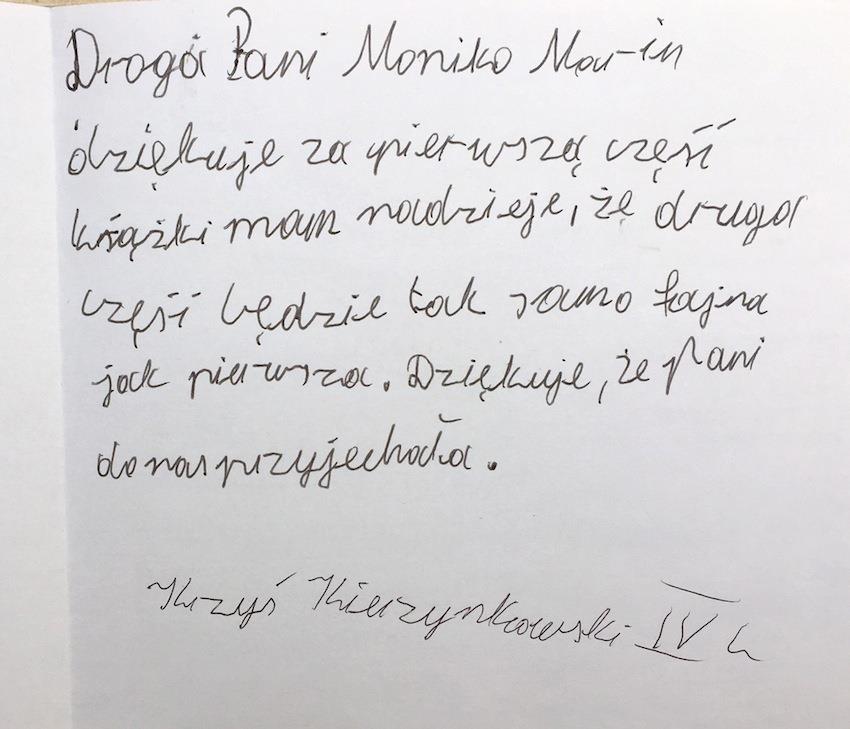 Droga Pani Moniko Marin
dziękuje za pierwszą część
książki mam nadzieje, że druga
część będzie tak samo fajna
jak pierwsza. Dziękuje, że Pani
do nas przyjechała.
Krzyś Kierzynkowski IV